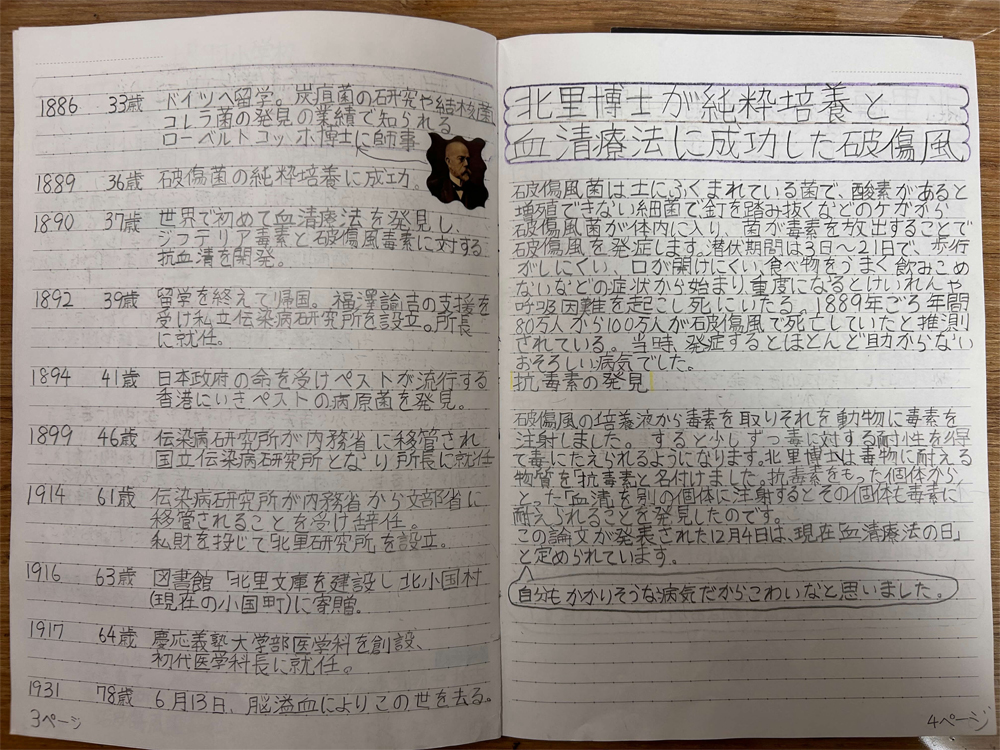 1886 33歳 ドイツへ留学。炭疽菌の研究や結核菌
コレラ菌の発見の業績で知られる
ローベルトコッホ博士に師事
1889 36歳 破傷菌の純粋培養に成功。
1890 37歳 世界で初めて血清療法を発見し、
ジフテリア毒素と破傷風毒素に対する
抗血清を開発。
1892 39歳 留学を終えて帰国。福澤諭吉の支援を
受け私立伝染病研究所を設立。所長
に就任。
1894 41歳 日本政府の命を受けペストが流行する
香港にいきペストの病原菌を発見。
1899 46歳 伝染病研究所が内務省に移管され
国立伝染病研究所となり所長に就任
1914 61歳 伝染病研究所が内務省から文部省に
移管されることを受け辞任。
私財を投じて「北里研究所」を設立。
1916 63歳 図書館「北里文庫を建設し北小国村
(現在の小国町)に寄贈。
1917 64歳 慶応義塾大学部医学科を創設、
初代医学科長に就任。
1931 78歳 6月13日、脳溢血によりこの世を去る。
3ページ
北里博士が純粋培養と
血清療法に成功した破傷風
破傷風菌は土にふくまれている菌で、酸素があると
増殖できない細菌で、釘を踏み抜くなどのケガから
破傷風菌が体内に入り、菌が毒素を放出することで
破傷風を発症します。潜伏期間は3日~21日で、歩行
がしにくい、口が開けにくい、食べ物をうまく飲みこめ
ないなどの症状から始まり、重度になるとけいれんや
呼吸困難を起こし死にいたる。1889年ごろ年間
80万人から100万人が破傷風で死亡していたと推測
されている。当時、発症するとほとんど助からない
おそろしい病気でした。
抗毒素の発見
破傷風の培養液から毒素を取りそれを動物に毒素を
注射しました。すると少しずつ毒に対する耐性を得
て毒にたえられるようになります。北里博士は毒物に耐える
物質を「抗毒素」と名付けました。抗毒素をもった個体から、
とった「血清」を別の個体に注射するとその個体も毒素に
耐えられることを発見したのです。
この論文が発表された12月4日は、現在「血清療法の日」
と定められています。
自分もかかりそうな病気だからこわいなと思いました。
4ページ